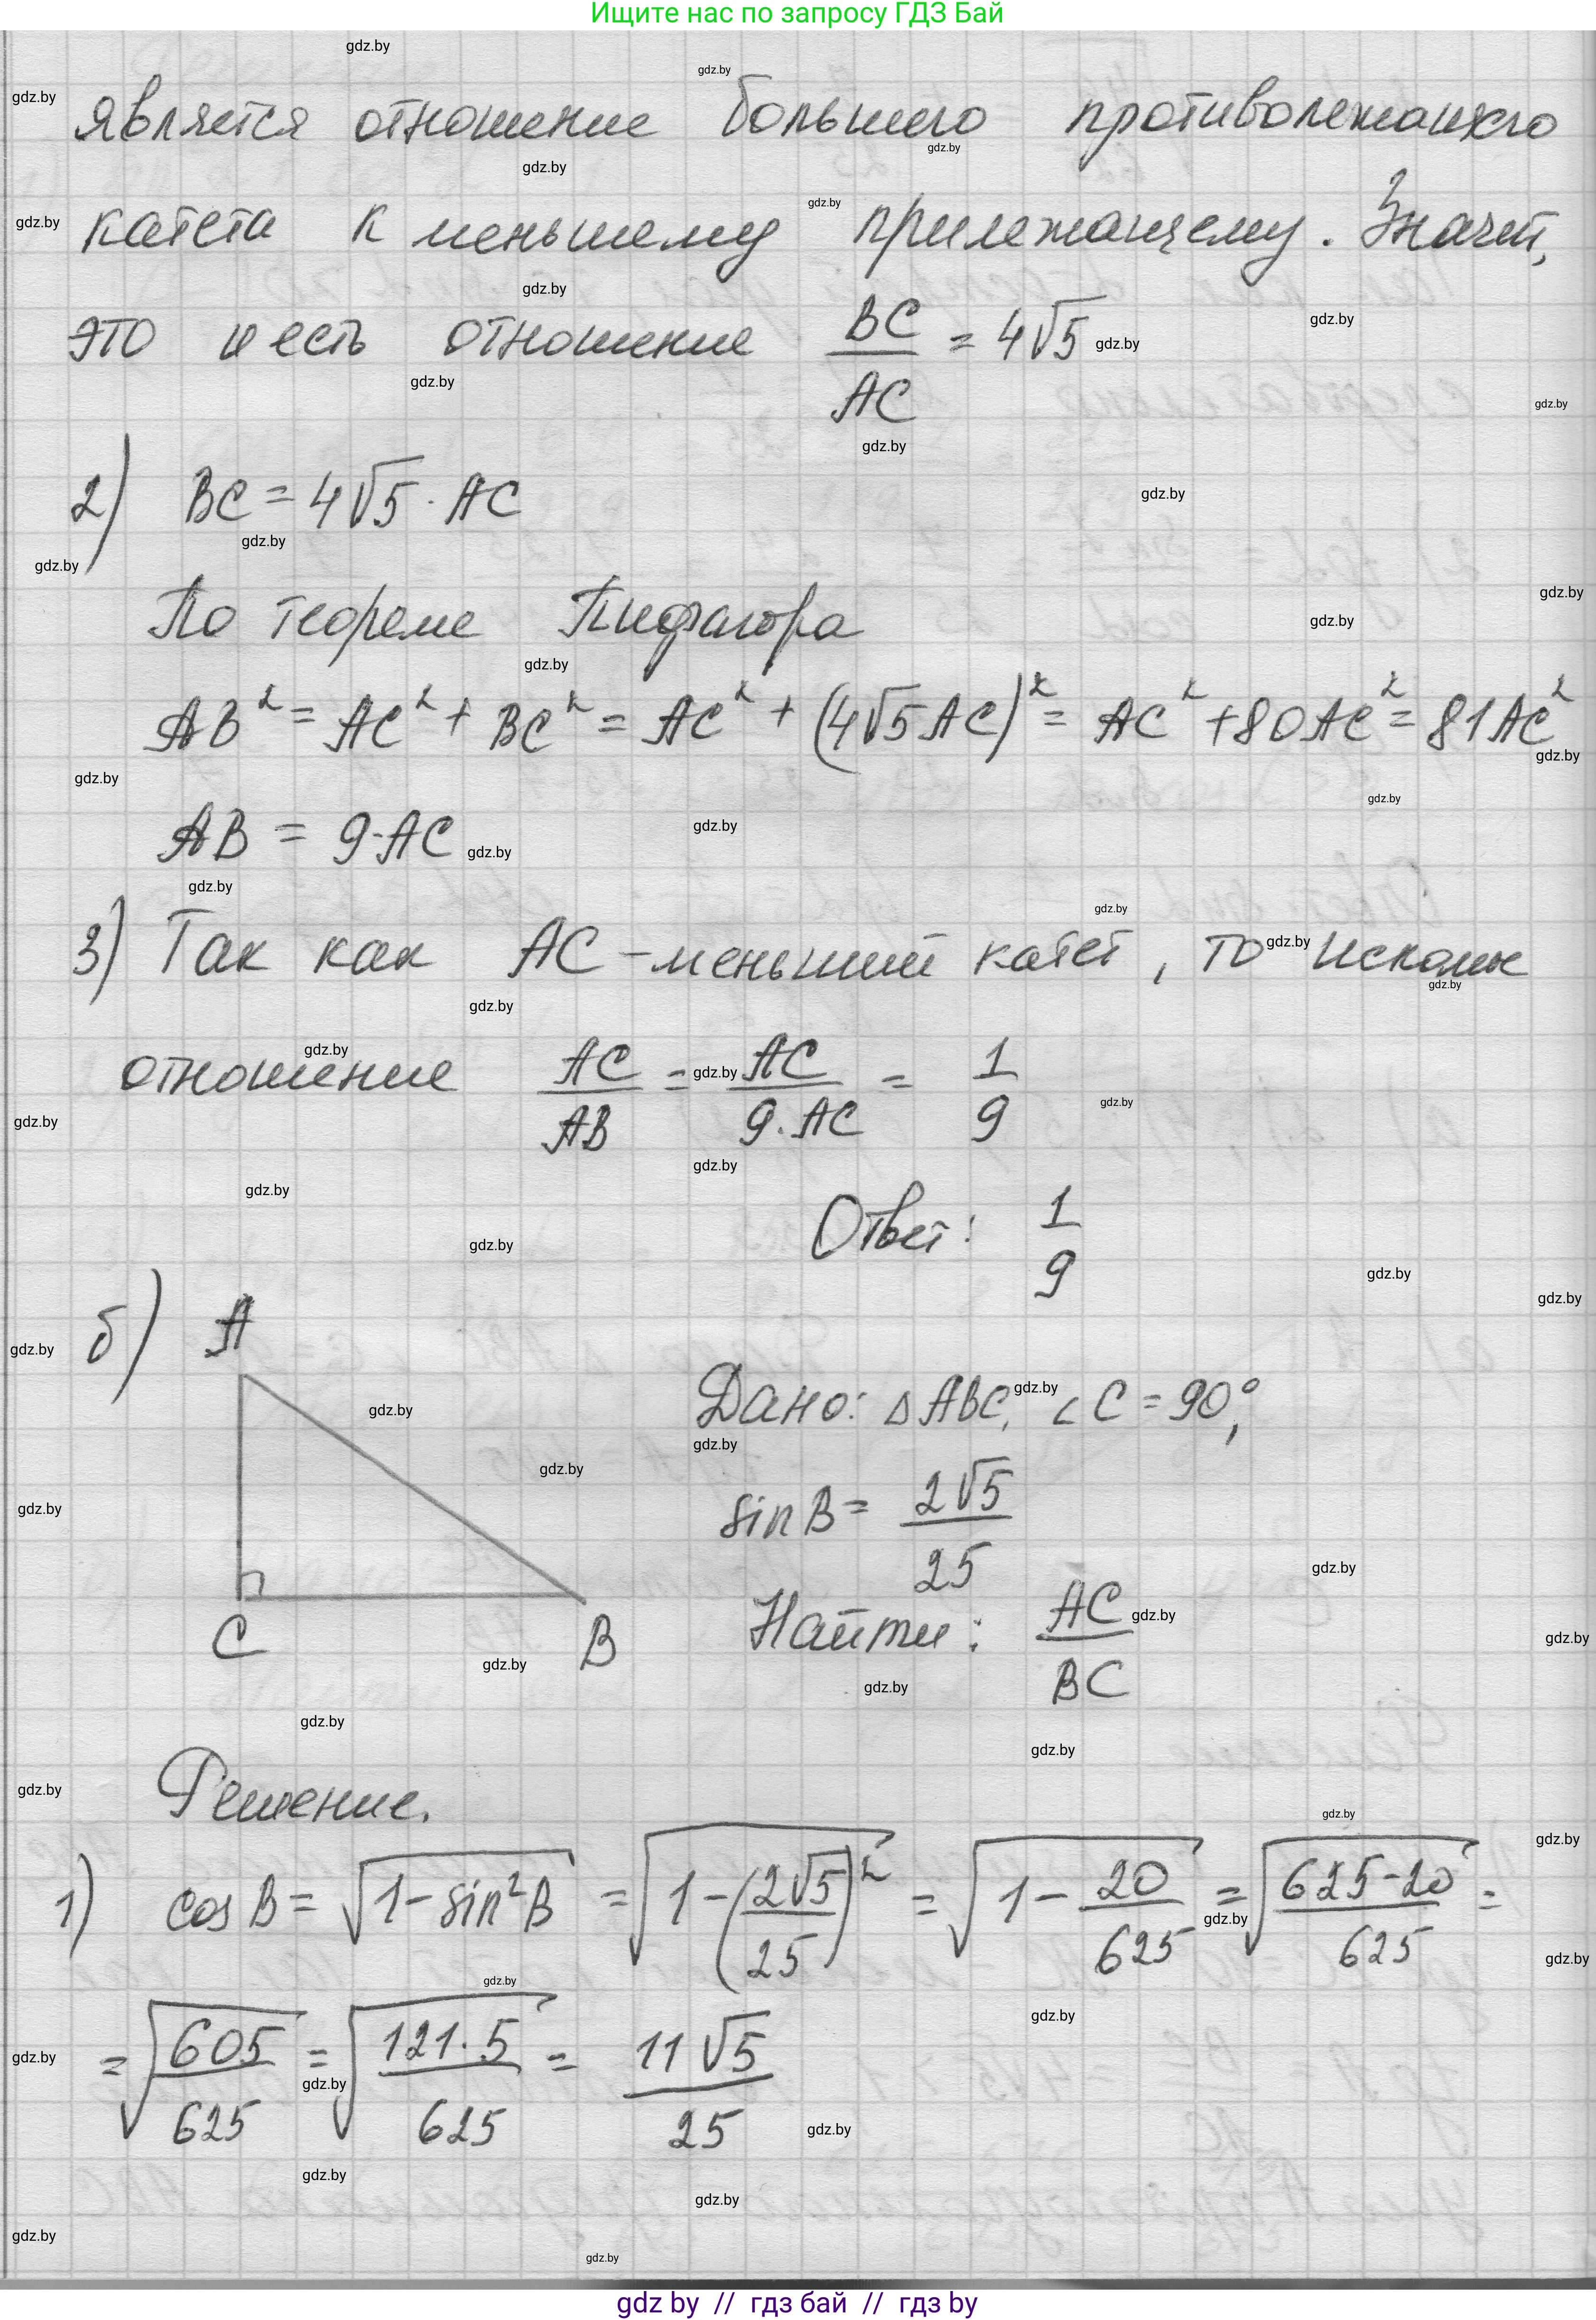 Ищите нас по запросу ГДЗ Бай
является отношение большего противолежащего
катета к меньшему прилежащему. Значит,
это и есть отношение BC/AC = 4√5
2) BC = 4√5 · AC
По теореме Пифагора
AB² = AC² + BC² = AC² + (4√5 AC)² = AC² + 80AC² = 81AC²
AB = 9·AC
3) Так как AC – меньший катет, то искомое
отношение AC/AB = AC/9·AC = 1/9
Ответ: 1/9
б) A
Дано: △ABC, ∠C = 90°,
sin B = 2√5/25
C B
Найти: AC/BC
Решение.
1) cos B = √(1 - sin²B) = √(1 - (2√5/25)²) = √(1 - 20/625) = √((625-20)/625) =
= √(605/625) = √(121·5/625) = 11√5/25
gdz by // гдз бай // гдз by